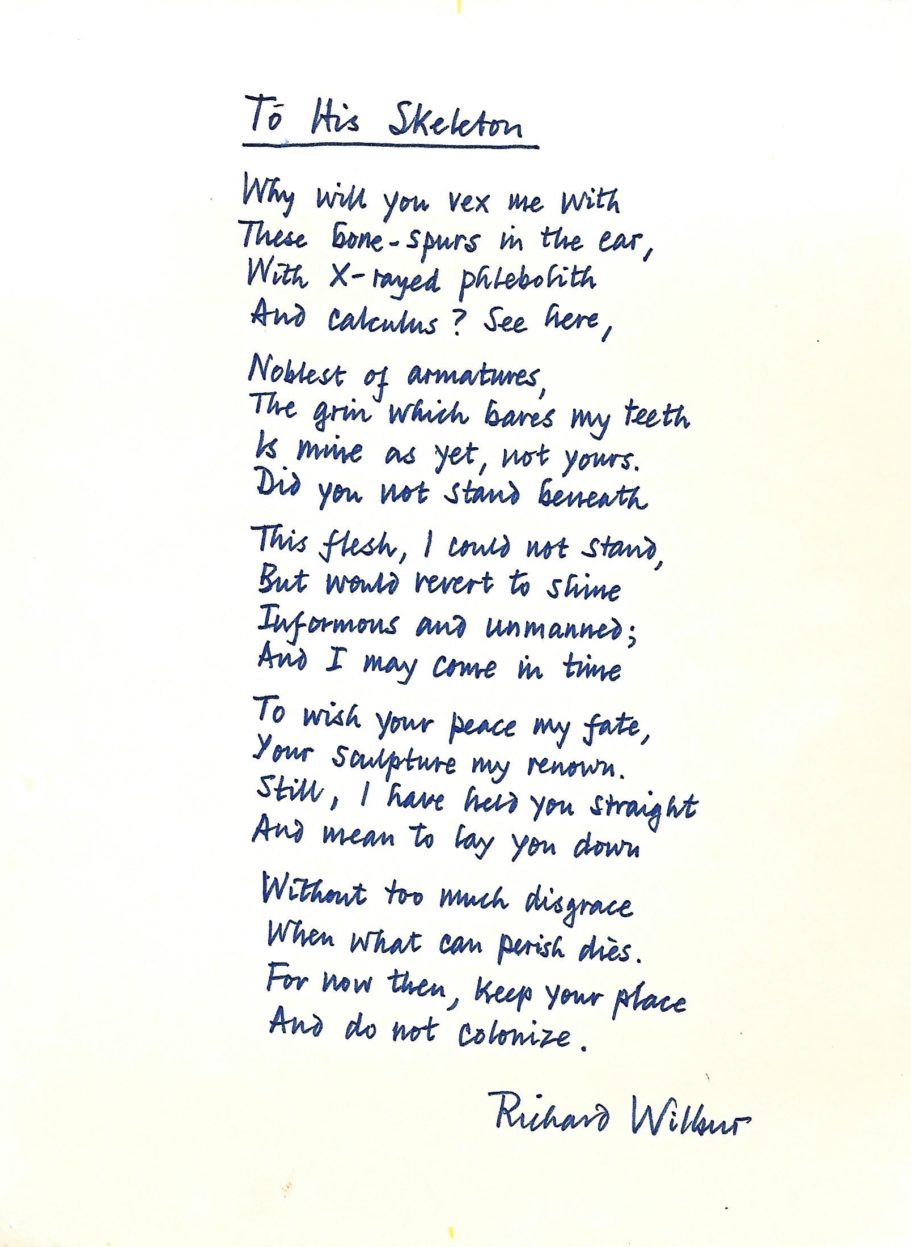 To His Skeleton
Why will you vex me with
These bone-spurs in the ear,
With X-rayed phlebolith
And calculus? See here,
Noblest of armatures,
The grin which bares my teeth
Is mine as yet, not yours.
Did you not stand beneath
This flesh, I could not stand,
But would revert to slime
Informous and unmanned;
And I may come in time
To wish your peace my fate,
Your sculpture my renown.
Still, I have held you straight
And mean to lay you down
Without too much disgrace
When what can perish dies.
For now then, keep your place
And do not colonize.
Richard Wilbur